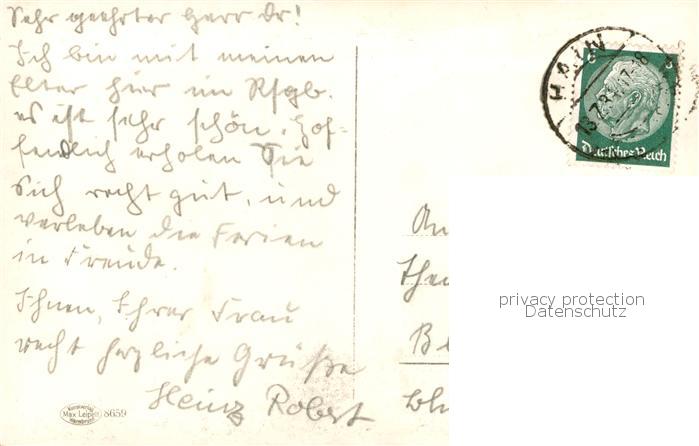 Sehr geehrter Herr Dr!
Ich bin mit meinen
Elter hier im Rsgb.
es ist sehr schön. Hof-
fendlich erholen Sie
sich recht gut, und
verleben die Ferien
in Freude.
Ihnen, Ihrer Frau
recht herzliche Grüße
Heinz Robert.
Max Leipelt
8659
HAIN
Deutsches Reich
6
An
privacy protection
Datenschutz